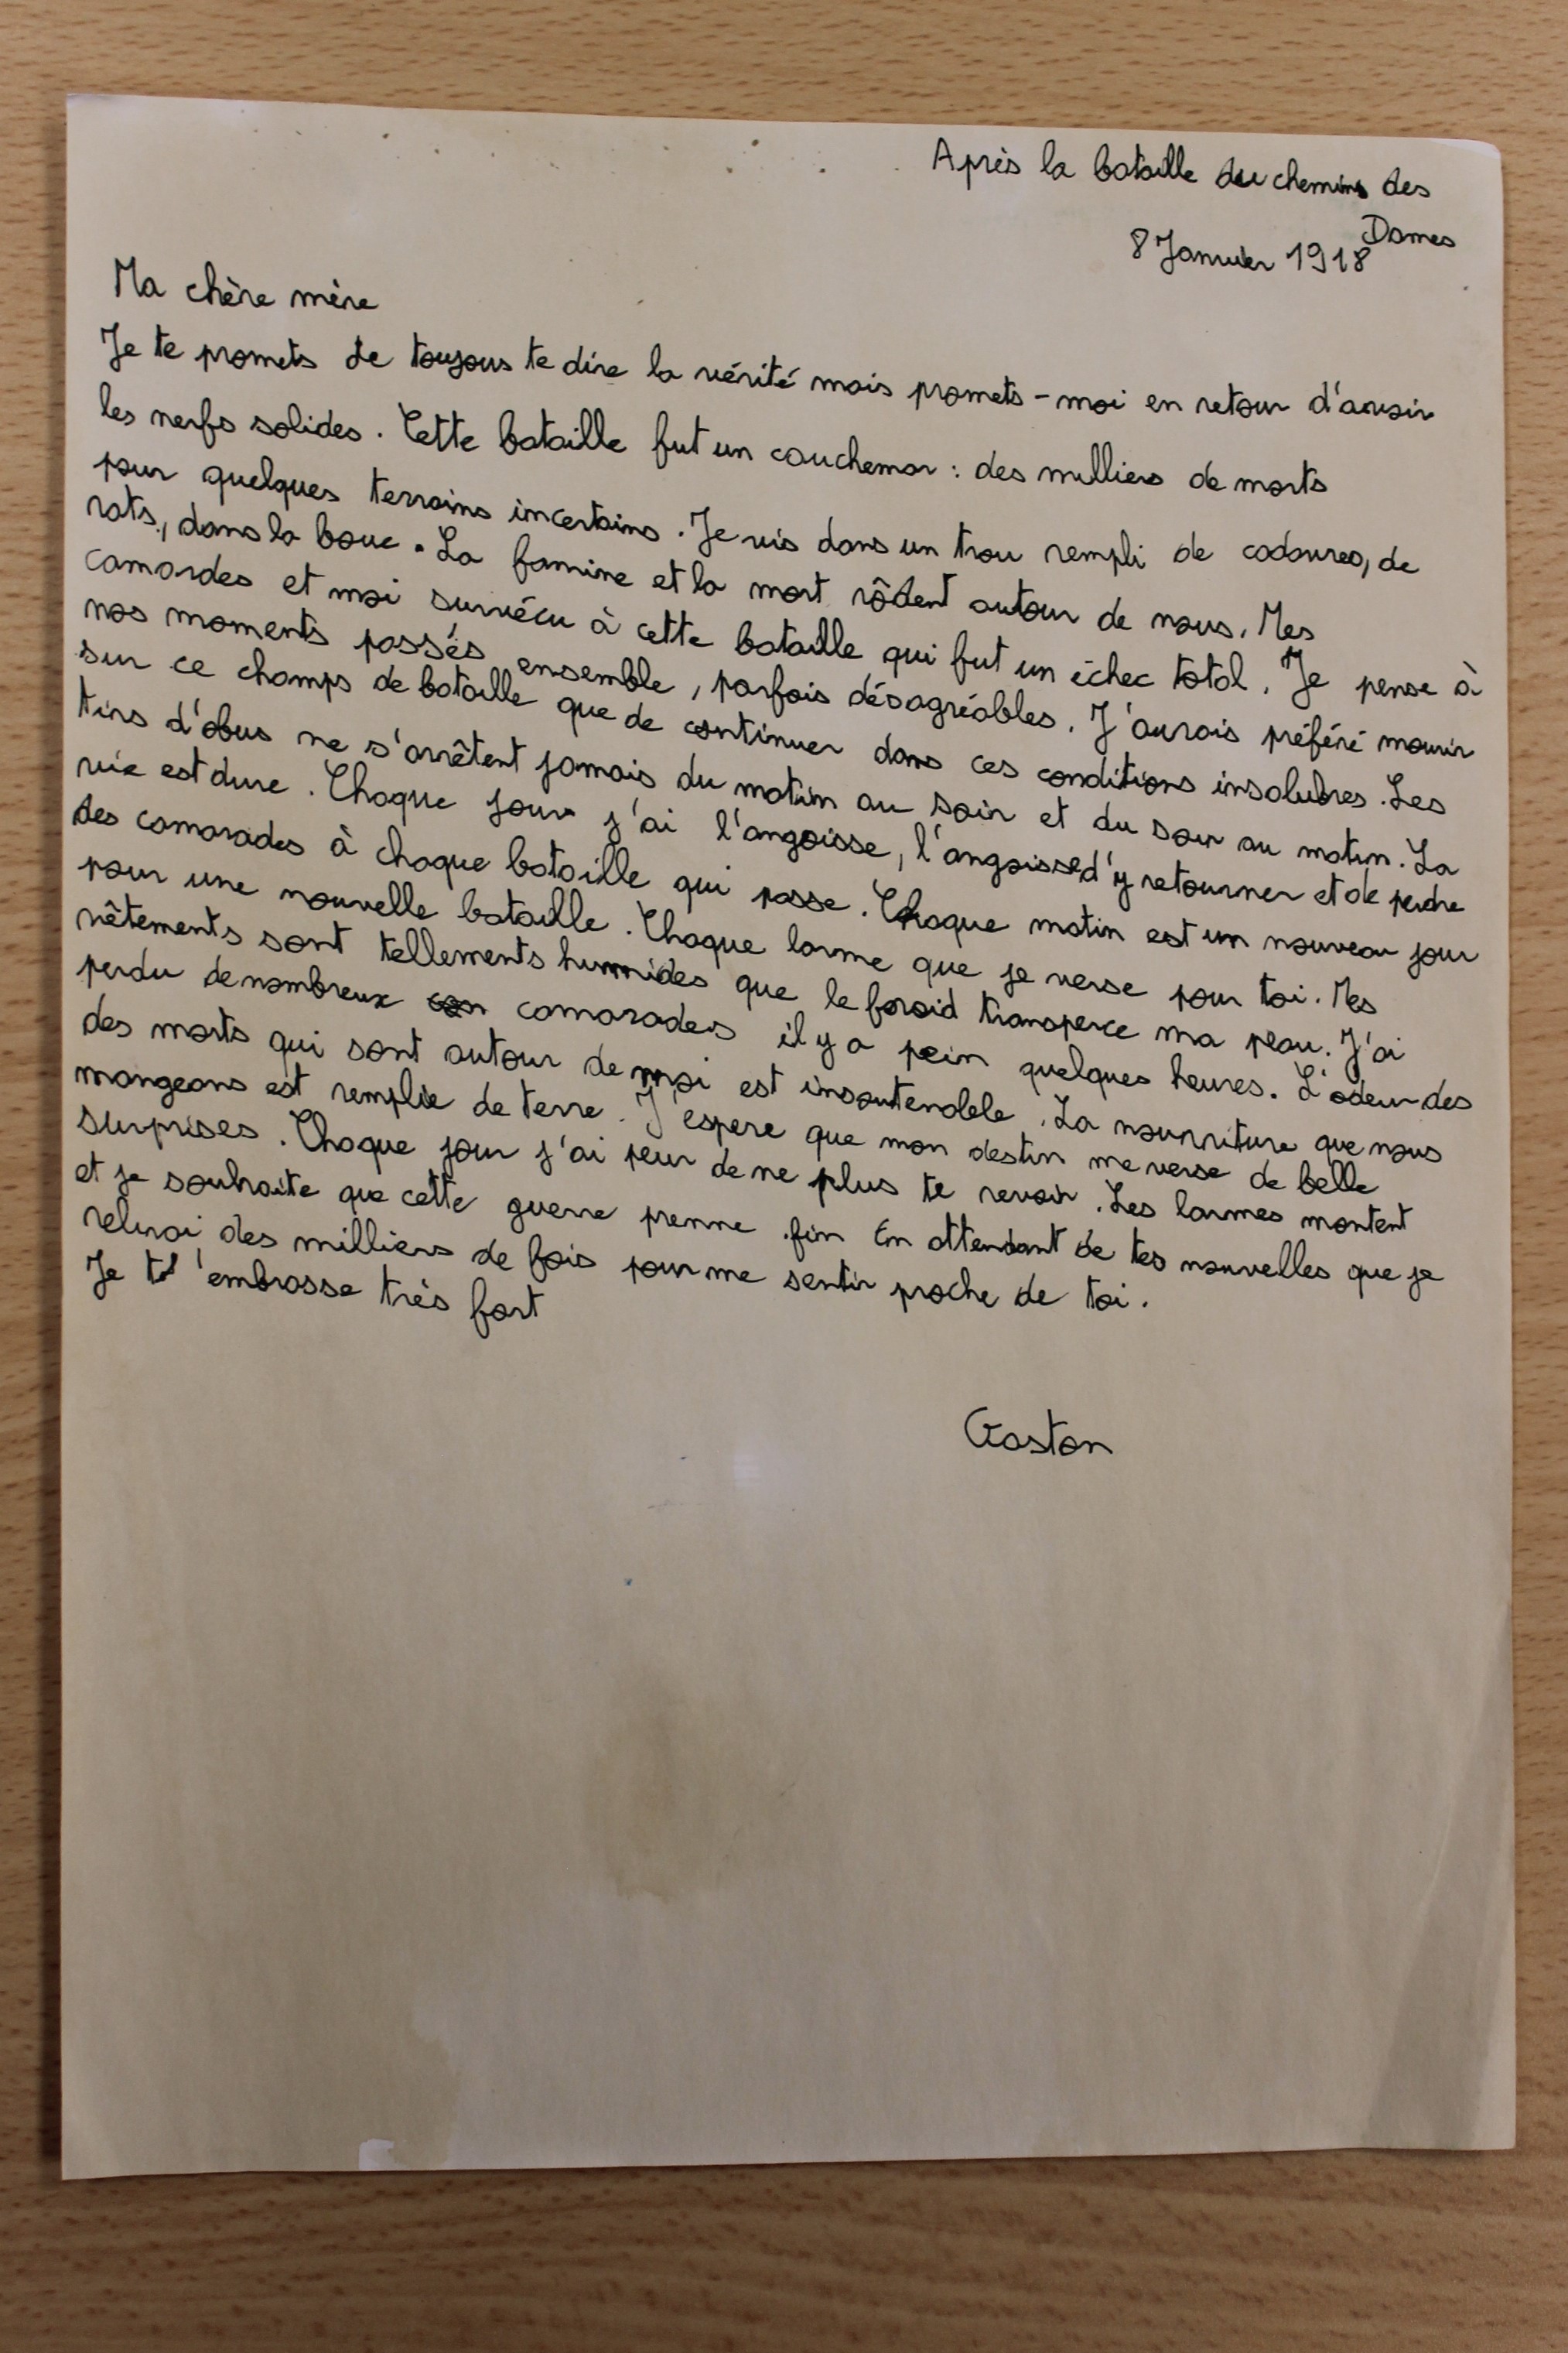 Après la bataille du chemins des
Dames
8 Janvier 1918
Ma chère mère
Je te promets de toujous te dire la vérité mais promets-moi en retour d'avoir
les nerfs solides. Cette bataille fut un cauchemar : des milliers de morts
pour quelques terrains incertains. Je vis dans un trou rempli de cadavres, de
rats, dans la boue. La famine et la mort rôdent autour de nous. Mes
camardes et moi survécu à cette bataille qui fut un échec total. Je pense à
nos moments passés ensemble, parfois désagréables. J'aurais préféré mourir
sur ce champs de bataille que de continuer dans ces conditions insalubres. Les
tirs d'obus ne s'arrêtent jamais du matin au soir et du soir au matin. La
vie est dure. Chaque jour j'ai l'angoisse, l'angoisse d'y retourner et de perdre
des camarades à chaque bataille qui passe. Chaque matin est un nouveau jour
pour une nouvelle bataille. Chaque larme que je verse pour toi. Mes
vêtements sont tellements humides que le froid transperce ma peau. J'ai
perdu de nombreux camarades il y a pein quelques heures. L'odeur des
des morts qui sont autour de moi est insoutenable. La nourriture que nous
mangeons est remplie de terre. J'espere que mon destin me verse de belle
surprises. Chaque jour j'ai peur de ne plus te revoir. Les larmes montent
et je souhaite que cette guerre prenne fin En attendant de tes nouvelles que je
relirai des milliers de fois pour me sentir proche de toi.
Je t'embrasse très fort
Gaston